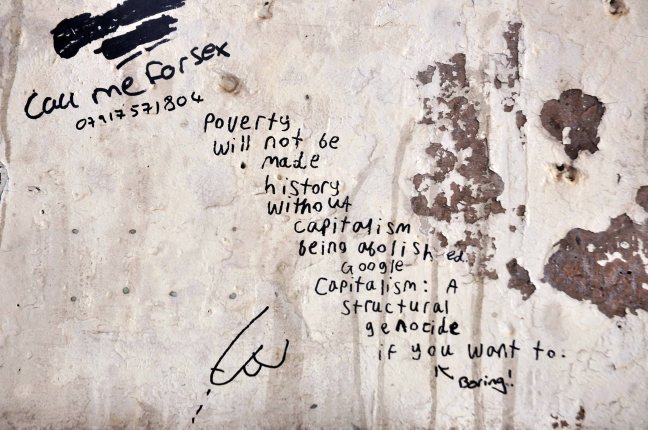 Call me For sex
07917571804
Poverty
will not be
made
history
without
capitalism
being abolished.
Google
Capitalism: A
structural
genocide
if you want to.
Boring!